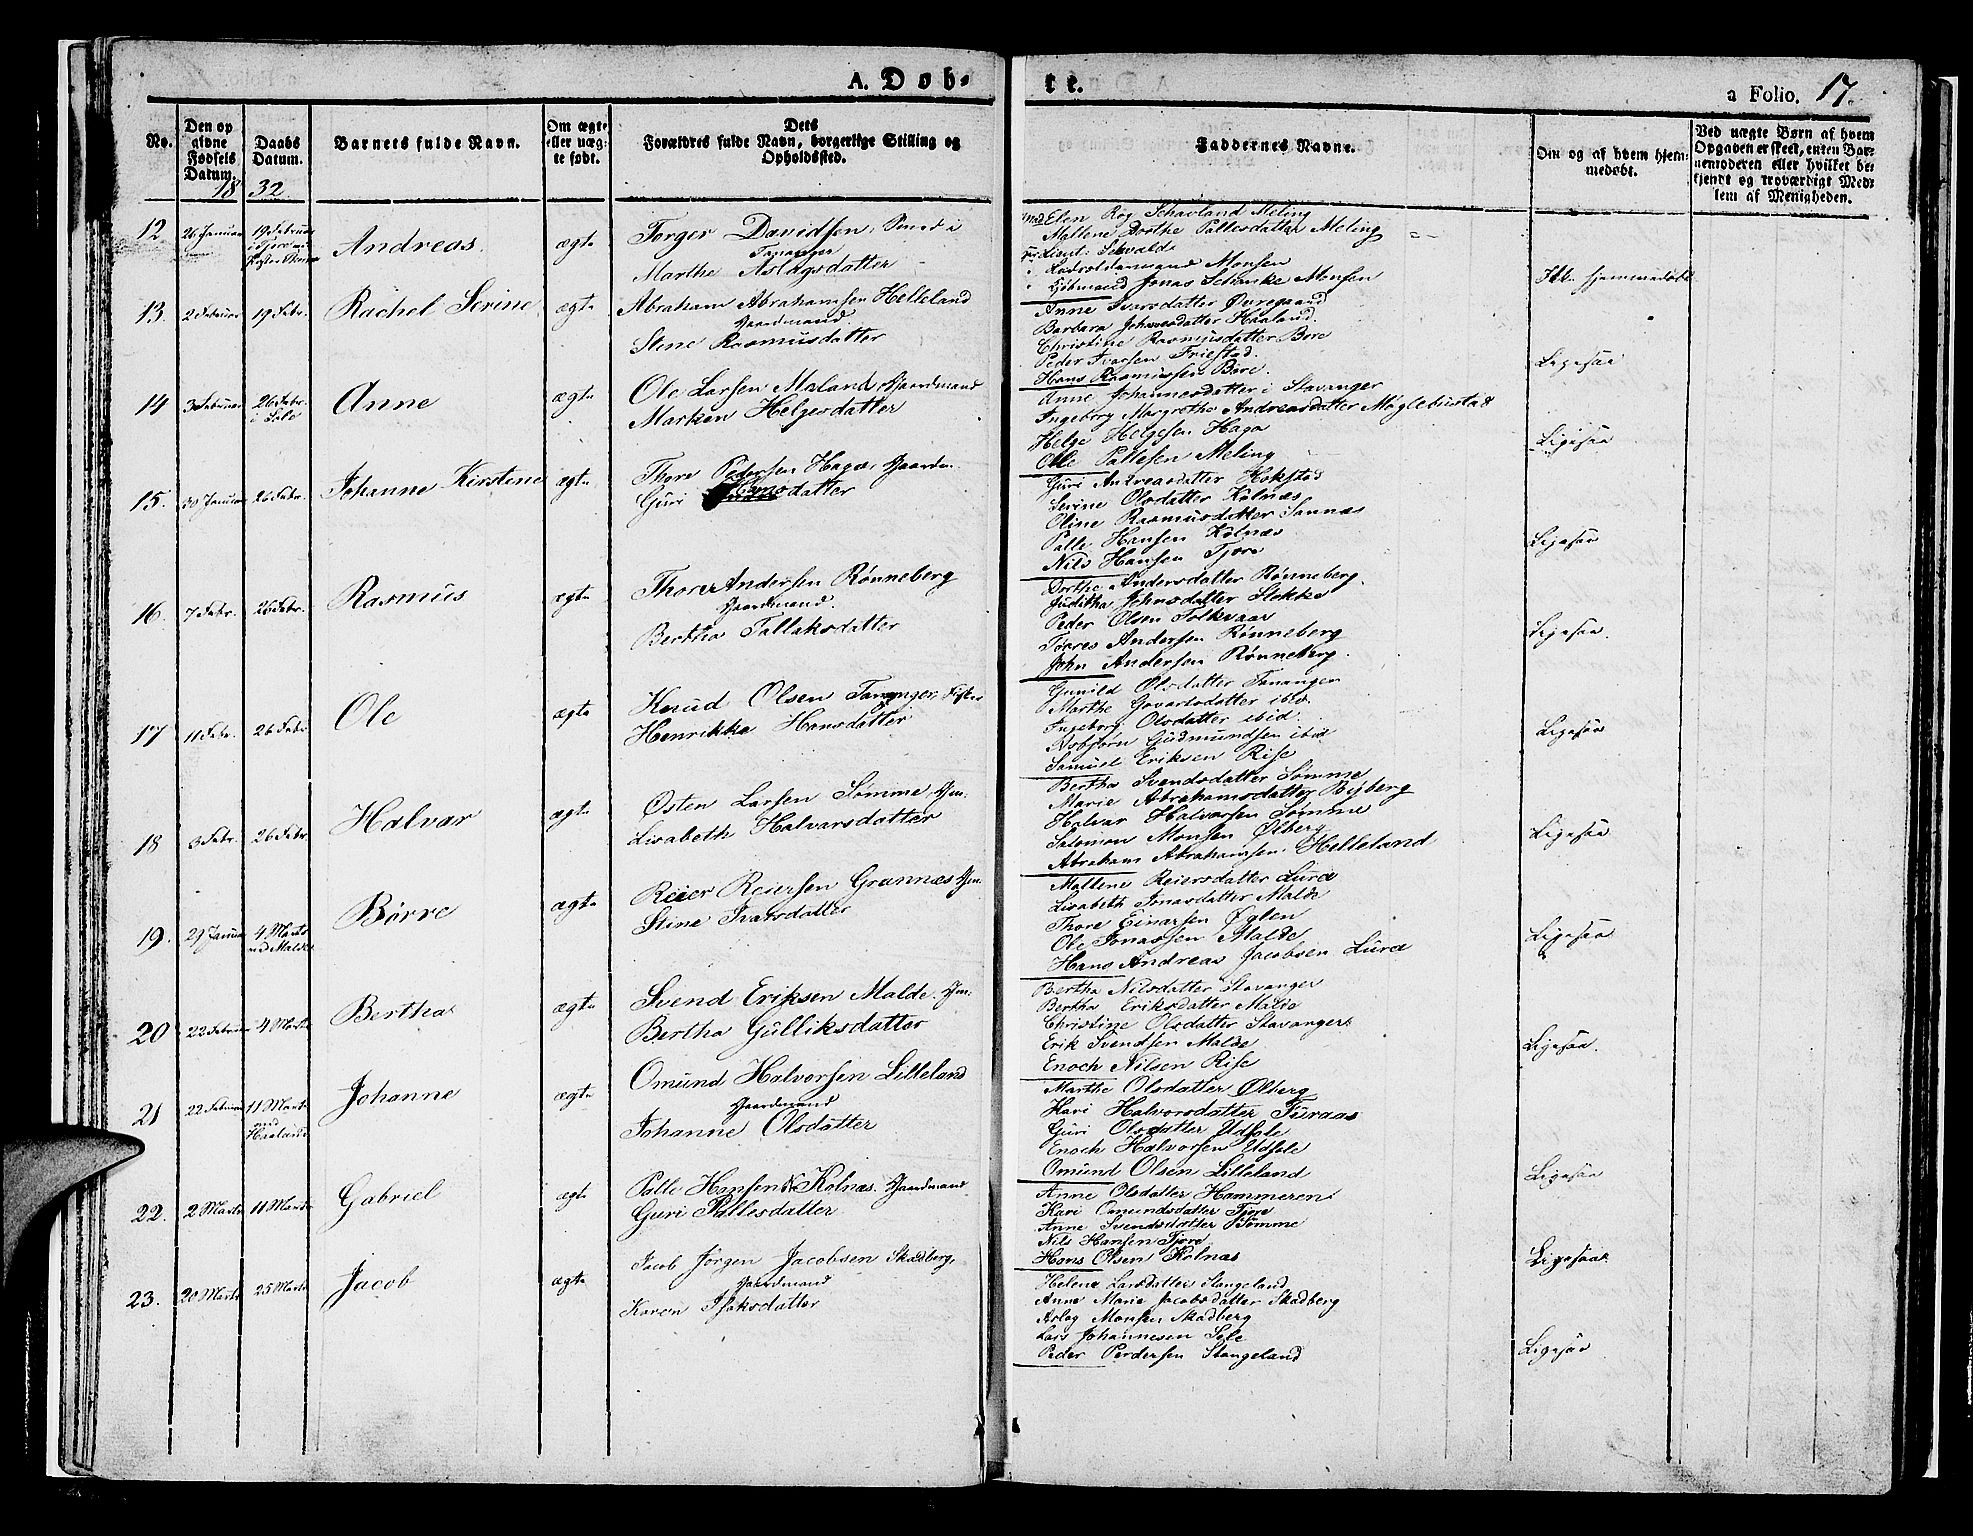 A. Døb-
te.
a Folio. 17.
No.
Den op
givne
Fødsels
Datum.
Daabs
Datum.
Barnets fulde Navn.
Om ægte
eller uæg-
te født.
Dets
Forældres fulde Navn, borgerlige Stilling og
Opholdssted.
Faddernes Navne.
Om og af hvem hjem-
medøbt.
Ved uægte Børn af hvem
Opgaven er skeet, enten Bar-
nemoderen eller hvilket be-
kjendt og troværdigt Med-
lem af Menigheden.
18 32
12
26 Januar
19 Februar
Andreas.
ægte
Torger Davidsen, Smed i
Tananger
Marthe Aslagsdatter
Elen Rog Schavland Meling
Mallene Dorthe Pallesdatter Meling
Monsen
Jonas Schanke Monsen
Ikke hjemmedøbt
13.
2 Februar
19 Febr.
Rachel Serine
ægte
Abraham Abrahamsen Helleland
Gaardmand.
Stine Rasmusdatter
Anne Ivarsdatter Øvregaard
Barbara Johnesdatter Haaland.
Christine Rasmusdatter Bore
Peder Ivarsen Friestad.
Hans Rasmussen Bore.
Ligesaa
14
3 Februar
26 Febr.
i Sole
Anne
ægte
Ole Larsen Maland, Gaardmand
Marken Helgesdatter
Anne Johannesdatter i Stavanger
Ingeborg Margrethe Andreasdatter Møglebustad
Helge Helgesen Haga
Ole Pallesen Meling
Ligesaa
15.
30 Januar
26 Febr.
Johanne Kirstene
ægte
Thore Pedersen Haga, Gaardm.
Guri Hansdatter
Guri Andreasdatter Hokstad
Serine Olsdatter Kolnæs
Oline Rasmusdatter Sannæs
Palle Hansen Kolnæs
Nils Hansen Tjore
Ligesaa
16.
7 Febr.
26 Febr.
Rasmus
ægte
Thore Andersen Rønneberg
Gaardmand.
Bertha Tallaksdatter
Dorthe Andersdatter Rønneberg.
Juditha Johnsdatter Stokke
Peder Olsen Folkvaar
Torres Andersen Rønneberg
John Andersen Rønneberg.
Ligesaa.
17
11 Febr.
26 Febr
Ole
ægte
Knud Olsen Tananger, Fisker
Henrikke Hansdatter
Gunild Olsdatter Tananger
Marthe Govartsdatter ibid.
Ingeborg Olsdatter ibid.
Asbjørn Gudmundsen ibid
Samuel Eriksen Rise
Ligesaa
18
3 Febr.
26 Febr.
Halvar
ægte
Østen Larsen Sømme, Gm.
Lisabeth Halvarsdatter
Bertha Svendsdatter Sømme
Marie Abrahamsdatter Byberg
Halvar Halvarsen Sømme
Salomon Monsen Ølberg
Abraham Abrahamsen Helleland
Ligesaa
19.
29 Januar
4 Marts
ved Malde
Børre
ægte
Reier Reiersen Grannæs Gm.
Stine Ivarsdatter
Mallene Reiersdatter Lura
Lisabeth Jonasdatter Malde
Thore Einarsen Øglen
Ole Jonassen Malde
Hans Andreas Jacobsen Lura
Ligesaa
20
22 Februar
4 Marts
Bertha
ægte
Svend Eriksen Malde. Gm.
Bertha Gulliksdatter
Bertha Nilsdatter Stavanger
Bertha Eriksdatter Malde
Christine Olsdatter Stavanger
Erik Svendsen Malde
Enoch Nilsen Rise
Ligesaa.
21
22 Februar
11 Marts
ved
Haaland
Johanne
ægte
Omund Halvorsen Lilleland
Gaardmand
Johanne Olsdatter
Marthe Olsdatter Ølberg
Kari Halvorsdatter Furaas
Guri Olsdatter Ydsole
Enoch Halvorsen Ydsole
Omund Olsen Lilleland
Ligesaa
22.
2 Marts
11 Marts
Gabriel
ægte
Palle Hansen Kolnæs. Gaardmand
Guri Pallesdatter
Anne Olsdatter Hammeren
Kari Omundsdatter Tjore
Anne Svendsdatter Sømme
Nils Hansen Tjore
Hans Olsen Kolnæs
Ligesaa
23.
20 Marts
25 Marts
Jacob
ægte
Jacob Jørgen Jacobsen Skadberg,
Gaardmand
Karen Isaksdatter
Helene Larsdatter Stangeland
Anne Marie Jacobsdatter Skadberg
Aslag Monsen Skadberg
Lars Johannesen Sole
Peder Pedersen Stangeland
Ligesaa